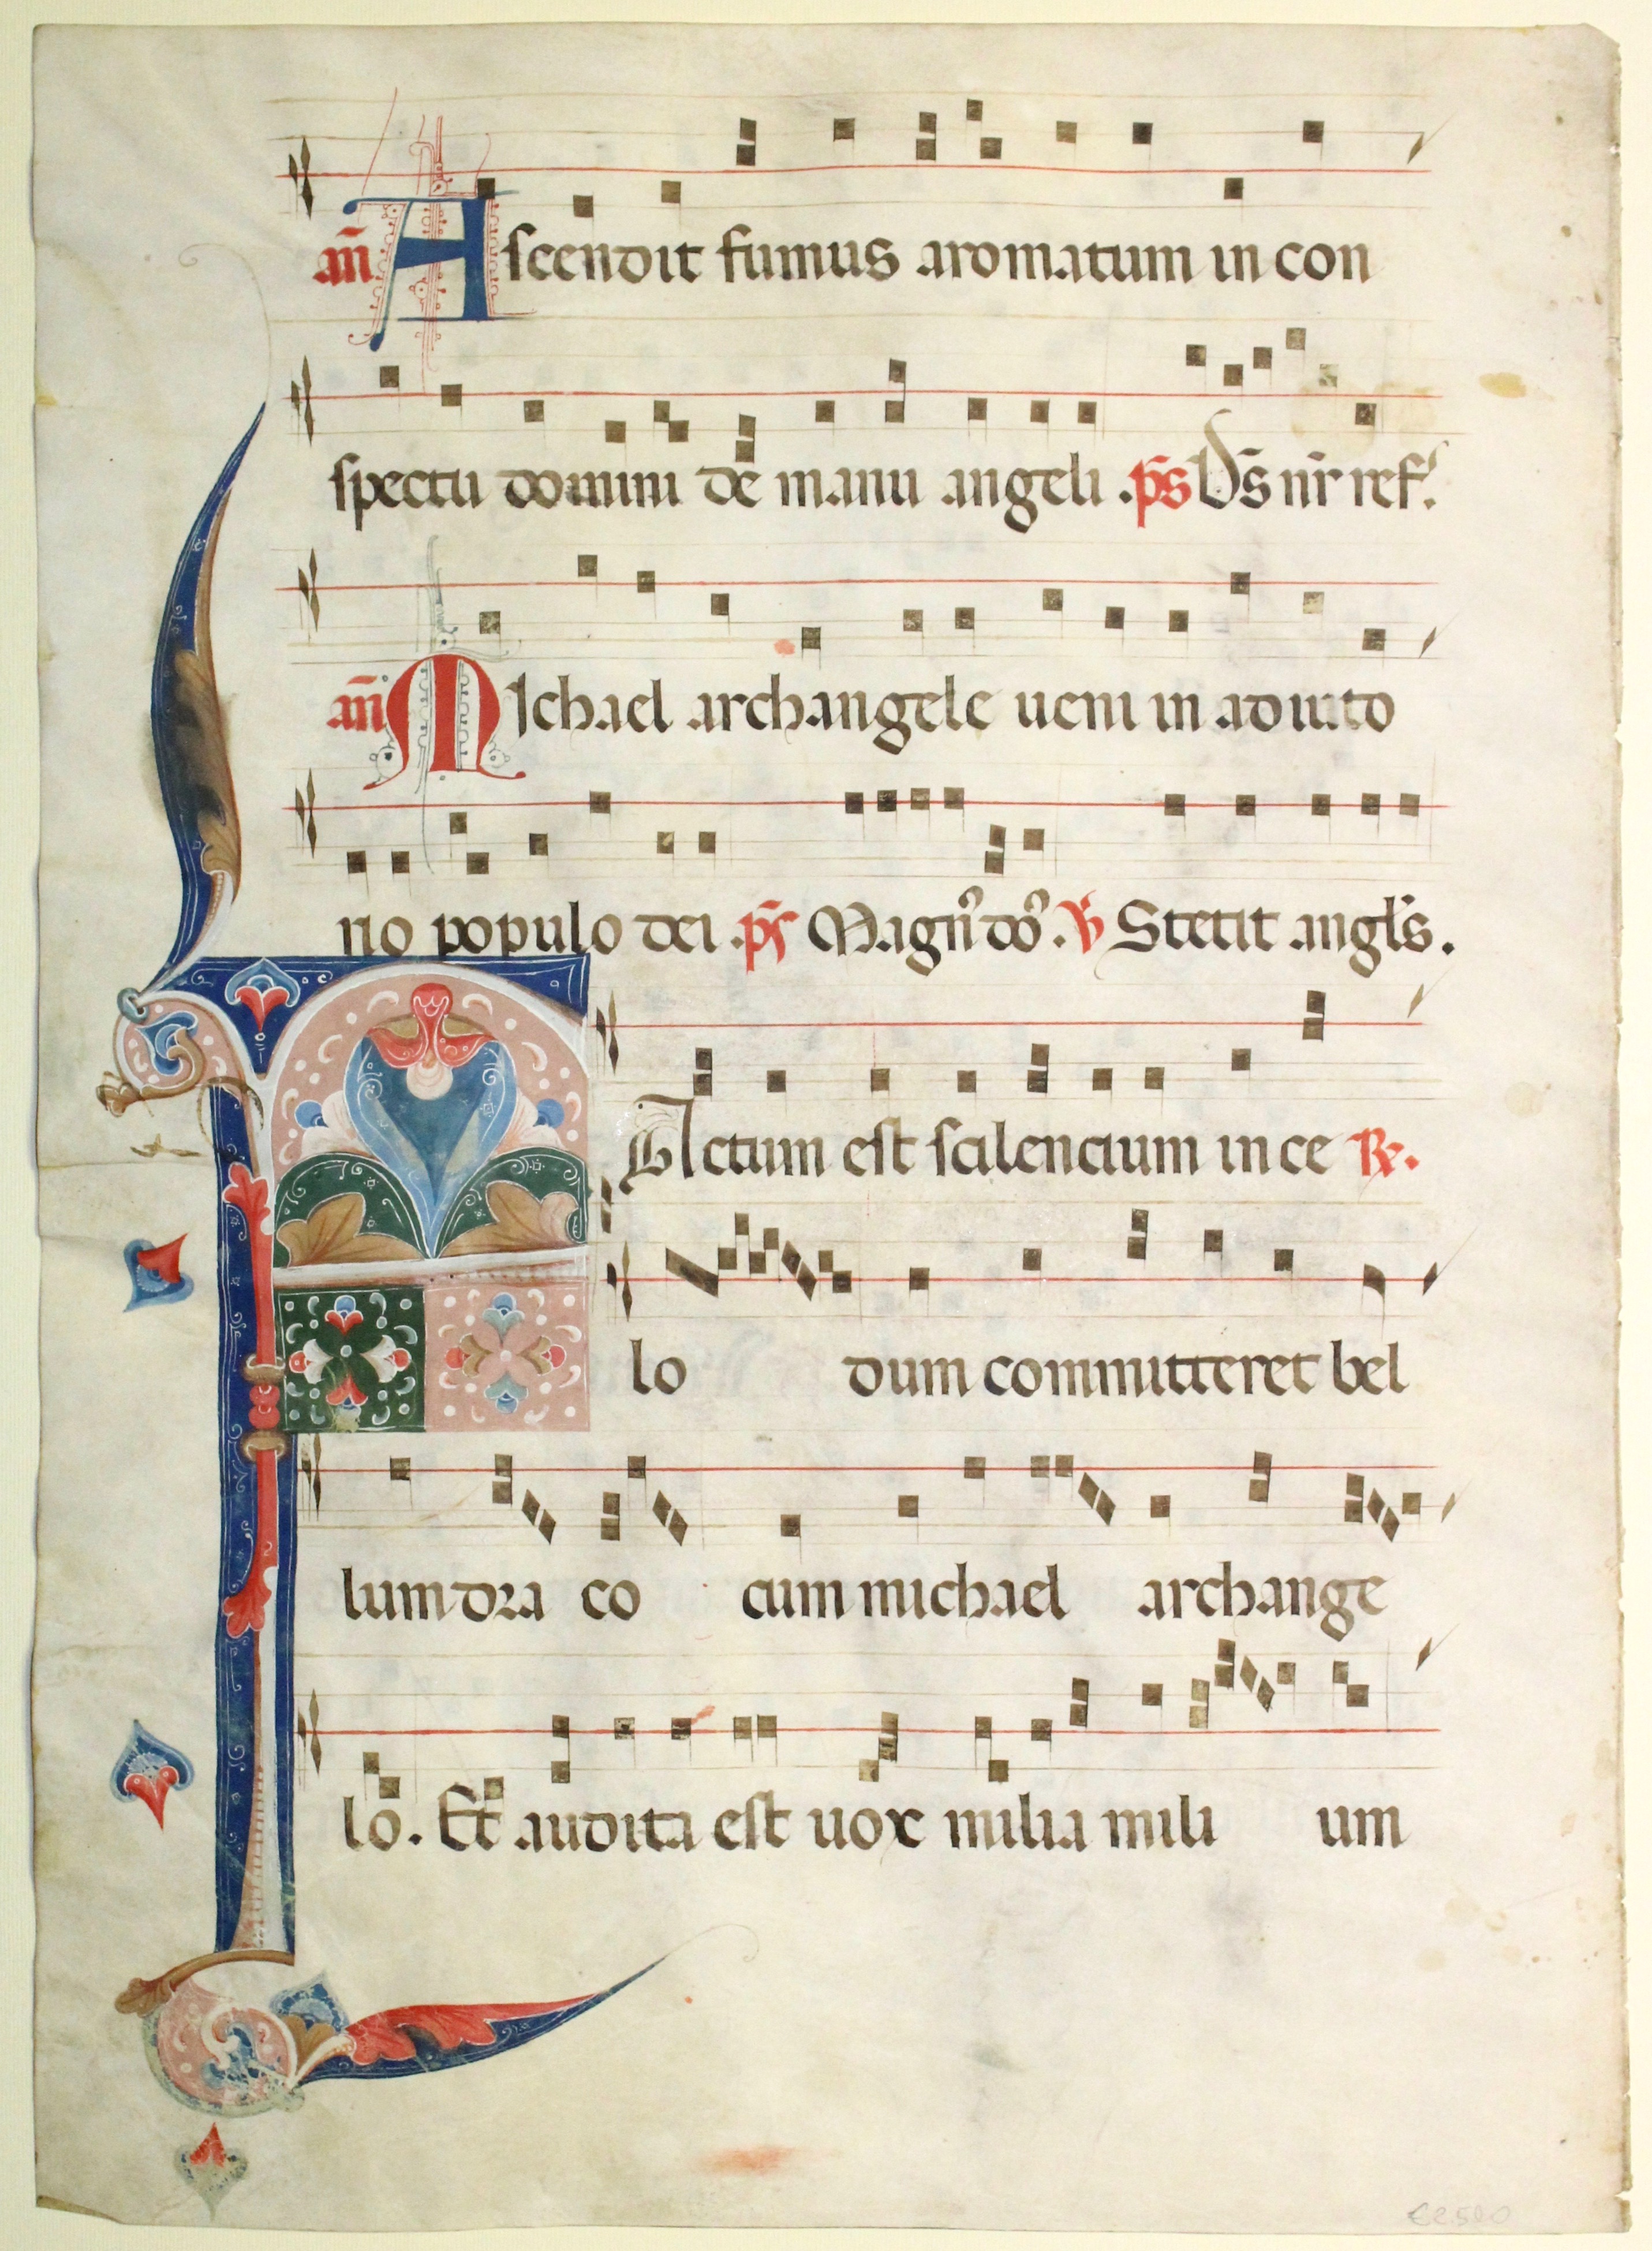 añ Ascendit fumus aromatum in con
spectu domini de manu angeli . ps̄ Ds̄ nr̄ ref.
añ Michael archangele ueni in adiuto
rio populo dei . ps̄ Magn̄ do . ℣ Stetit angl's.
FActum est scilencium in ce ℟.
lo dum committeret bel
lum dra co cum michael archange
lo. Et audita est uox milia mili um